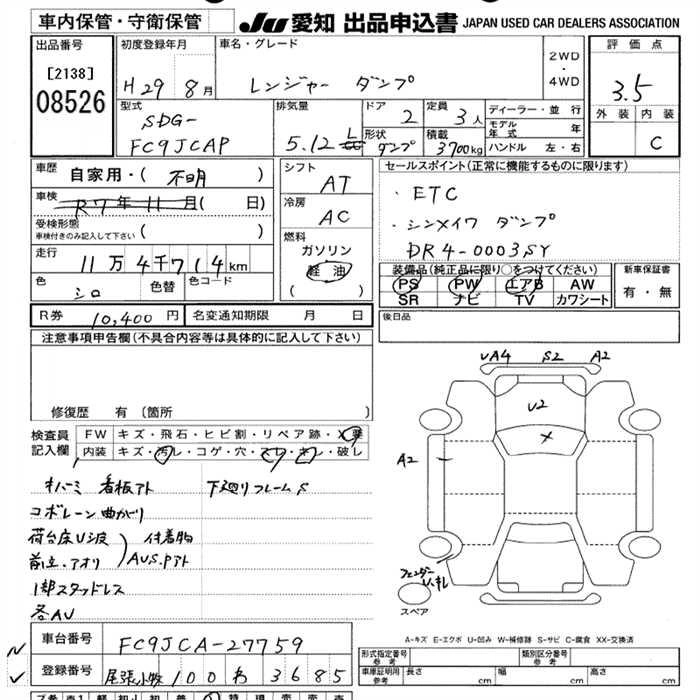 車内保管・守衛保管
JU 愛知 出品申込書 JAPAN USED CAR DEALERS ASSOCIATION
出品番号 初度登録年月 車名・グレード 2WD・4WD 評価点
[2138] H29年8月 レンジャー ダンプ 3.5
08526
型式 排気量 ドア 定員 ディーラー・並行 外装 内装
SDG- 2 3人 モデル年式 年
FC9JCAP 5.12 L 形状 ダンプ 積載 3700kg ハンドル 左・右 C
車歴 自家用・( 不明 ) シフト AT セールスポイント(正常に機能するものに限ります)
車検 R7年11月( 日) 冷房 AC ・ETC
受検形態 車検付きのみ記入して下さい ( ) ・シンメイワ ダンプ
走行 11万4千714km 燃料 ガソリン 軽油 ( ) DR4-0003SY
色 シロ 色替 色コード 装備品(純正品に限り○をつけてください) 新車保証書
PS PW エアB AW 有・無
SR ナビ TV カワシート
R券 10,400円 名変通知期限 月 日 後日品
注意事項申告欄(不具合内容等は具体的に記入して下さい)
修復歴 有(箇所 )
UA4 S2 A2
U2
X
A2
フェンダー
スペア
検査員記入欄 FW キズ・飛石・ヒビ割・リペア跡・X・要
内装 キズ・汚レ・コゲ・穴・スレ・キレ・破し
オバーミ 看板アト 下廻りフレームS
コボレーン曲がり
荷台床U波 付着物
前立.アオリ AUS.Pアト
1部スタッドレス
各AU
A-キズ E-エクボ U-凹み W-補修跡 S-サビ C-腐食 XX-交換済
車台番号 FC9JCA-27759
登録番号 尾張小牧 100 わ 3685
形式指定番号 参考 類別区分番号 参考
車庫証明用 参考 長さ cm 幅 cm 高さ cm